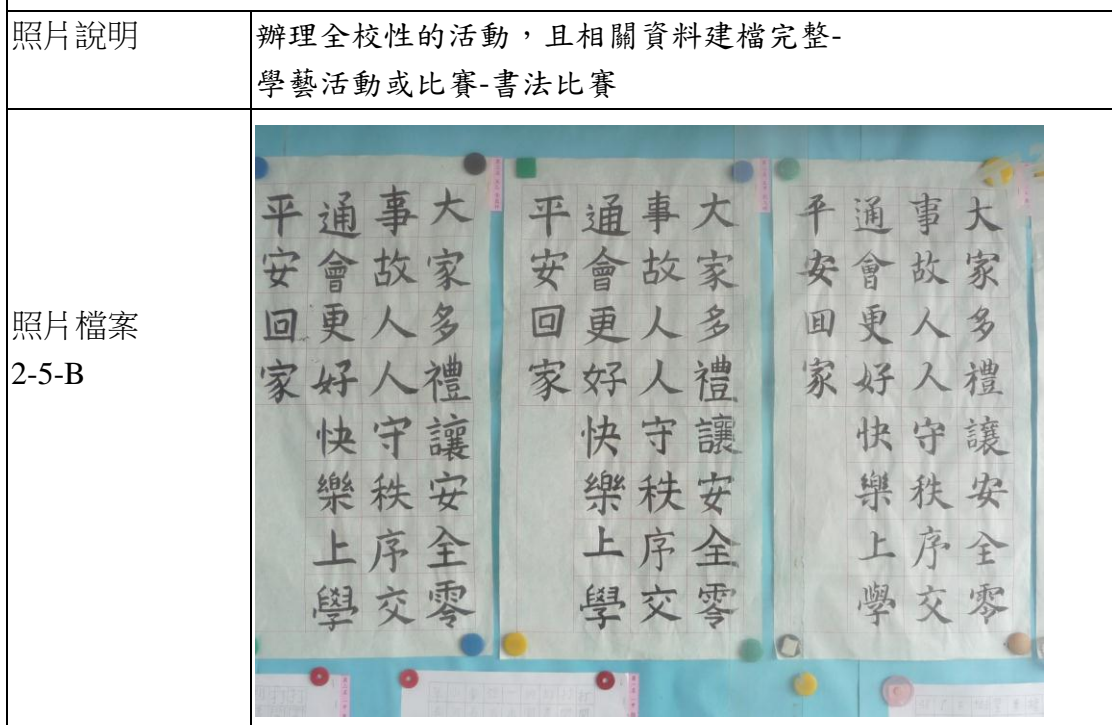 照片說明
辦理全校性的活動，且相關資料建檔完整-
學藝活動或比賽-書法比賽
照片檔案
2-5-B
大家多禮讓安全零
事故人人守秩序交
通會更好快樂上學
平安回家
大家多禮讓安全零
事故人人守秩序交
通會更好快樂上學
平安回家
大家多禮讓安全零
事故人人守秩序交
通會更好快樂上學
平安回家